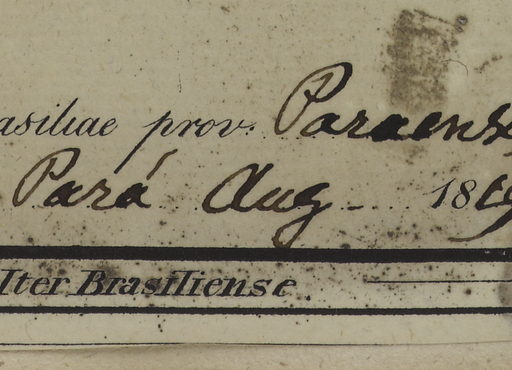 asiliae prov. Paraense
Pará Aug 1819
Iter Brasiliense